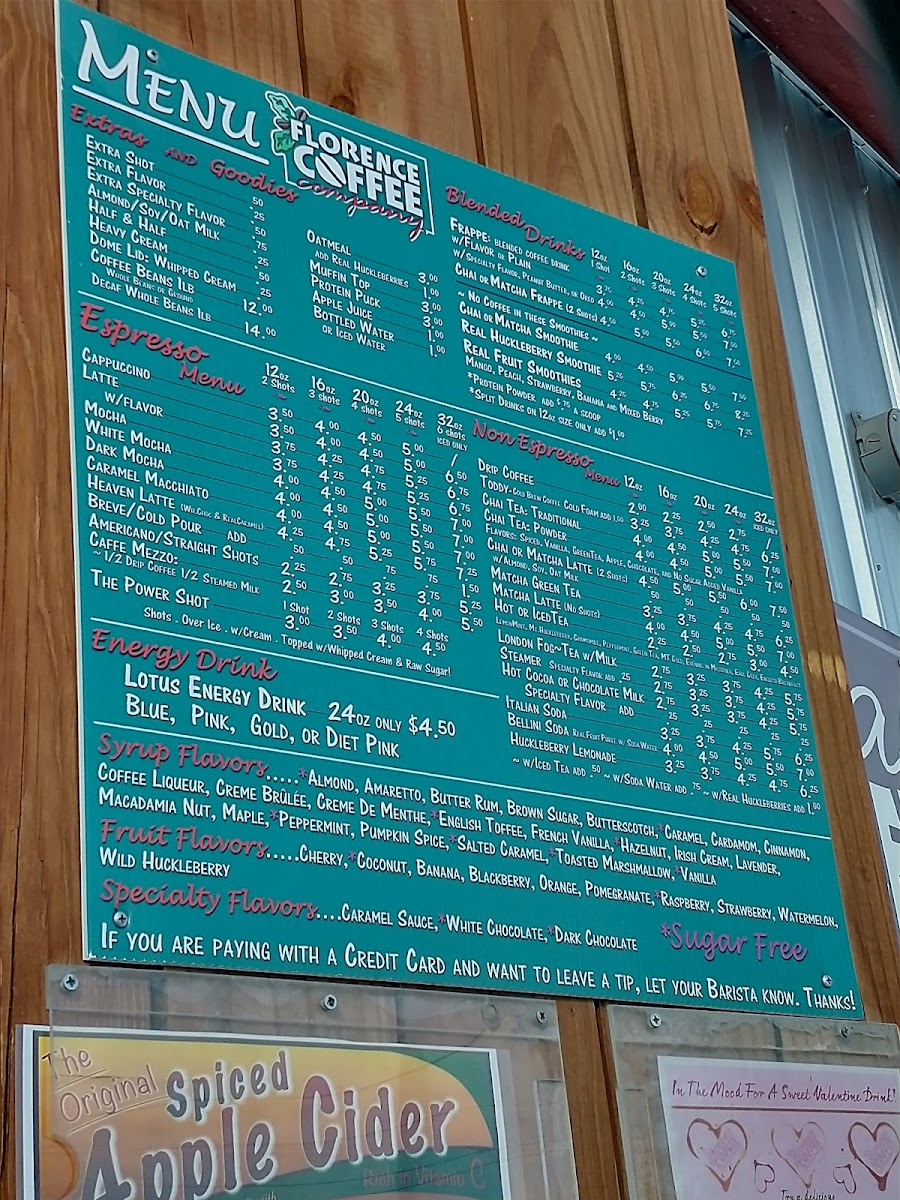 MENU
FLORENCE
COFFEE
company
Extras AND Goodies
Extra Shot .50
Extra Flavor .25
Extra Specialty Flavor .75
Almond/Soy/Oat Milk
Half & Half .25
Heavy Cream .50
Dome Lid: Whipped Cream .25
Coffee Beans 1lb 12.00
Whole Beans or Ground
Decaf Whole Beans 1lb 14.00
Oatmeal 3.00
add Real Huckleberries 1.00
Muffin Top 3.00
Protein Puck 3.00
Apple Juice 1.00
Bottled Water 1.00
or Iced Water
Blended Drinks
12oz 16oz 20oz 24oz 32oz
1 Shot 2 Shots 3 Shots 4 Shots 5 Shots
Frappe: blended coffee drink
w/Flavor or Plain 3.75 4.25 4.75 5.25 6.75
w/ Specialty Flavor, Peanut Butter, or Oreo 4.00 4.50 5.00 5.50 7.00
Chai or Matcha Frappe (2 Shots) 4.50 5.00 5.50 6.00 7.50
~ No Coffee in these Smoothies ~
Chai or Matcha Smoothie 4.00 4.50 5.00 5.50 7.00
Real Huckleberry Smoothie 5.25 5.75 6.25 6.75 8.25
Real Fruit Smoothies 4.25 4.75 5.25 5.75 7.25
Mango, Peach, Strawberry, Banana and Mixed Berry
*Protein Powder add $.75 a scoop
*Split Drinks on 12oz size only add $1.00
Espresso Menu
12oz 16oz 20oz 24oz 32oz
2 Shots 3 shots 4 shots 5 shots 6 shots
iced only
Cappuccino 3.50 4.00 4.50 5.00 /
Latte 3.50 4.00 4.50 5.00 6.50
w/flavor 3.75 4.25 4.75 5.25 6.75
Mocha 3.75 4.25 4.75 5.25 6.75
White Mocha 4.00 4.50 5.00 5.50 7.00
Dark Mocha 4.00 4.50 5.00 5.50 7.00
Caramel Macchiato 4.00 4.50 5.00 5.50 7.00
Heaven Latte (Wh.Choc & RealCaramel) 4.25 4.75 5.25 5.75 7.25
Breve/Cold Pour add .50 .50 .75 .75 1.50
Americano/Straight Shots 2.25 2.75 3.25 3.75 5.25
Caffe Mezzo: 2.50 3.00 3.50 4.00 5.50
~1/2 Drip Coffee 1/2 Steamed Milk
1 Shot 2 Shots 3 Shots 4 Shots
The Power Shot 3.00 3.50 4.00 4.50
Shots . Over Ice . w/Cream . Topped w/Whipped Cream & Raw Sugar!
Non Espresso Menu
12oz 16oz 20oz 24oz 32oz
iced only
Drip Coffee 2.00 2.25 2.50 2.75 /
Toddy-Cold Brew Coffee Cold Foam add 1.50 3.25 3.75 4.25 4.75 6.25
Chai Tea: Traditional 4.00 4.50 5.00 5.50 7.00
Chai Tea: Powder 4.00 4.50 5.00 5.50 7.00
Flavors: Spiced, Vanilla, GreenTea, Apple, Chocolate, and No Sugar Added Vanilla
Chai or Matcha Latte (2 Shots) 4.50 5.00 5.50 6.00 7.50
w/Almond, Soy, Oat Milk
Matcha Green Tea 3.25 3.75 4.25 4.75 6.25
Matcha Latte (No Shots) 4.00 4.50 5.00 5.50 7.00
Hot or IcedTea 2.25 2.50 2.75 3.00 4.50
LemonMint, Mt.Huckleberry, Chamomile, Peppermint, Green Tea, Mt Gold, Evening in Missoula, Earl Grey, English Breakfast
London Fog~Tea w/Milk 2.75 3.25 3.75 4.25 5.75
Steamer Specialty Flavor add .25 2.75 3.25 3.75 4.25 5.75
Hot Cocoa or Chocolate Milk 2.75 3.25 3.75 4.25 5.75
Specialty Flavor add .25 .25 .25 .25 .25
Italian Soda 3.25 3.75 4.25 4.75 6.25
Bellini Soda Real Fruit Puree w/ Soda Water 4.00 4.50 5.00 5.50 7.00
Huckleberry Lemonade 3.25 3.75 4.25 4.75 6.25
~ w/Iced Tea add .50 ~ w/Soda Water add .75 ~ w/Real Huckleberries add 1.00
Energy Drink
Lotus Energy Drink 24oz only $4.50
Blue, Pink, Gold, or Diet Pink
Syrup Flavors.....*Almond, Amaretto, Butter Rum, Brown Sugar, Butterscotch,*Caramel, Cardamom, Cinnamon,
Coffee Liqueur, Creme Brûlée, Creme De Menthe,*English Toffee, French Vanilla,*Hazelnut, Irish Cream, Lavender,
Macadamia Nut, Maple,*Peppermint, Pumpkin Spice,*Salted Caramel,*Toasted Marshmallow,*Vanilla
Fruit Flavors.....Cherry,*Coconut, Banana, Blackberry, Orange, Pomegranate,*Raspberry, Strawberry, Watermelon,
Wild Huckleberry
Specialty Flavors....Caramel Sauce,*White Chocolate,*Dark Chocolate *Sugar Free
If you are paying with a Credit Card and want to leave a tip, let your Barista know. Thanks!
The Original
Spiced
Apple Cider
Rich in Vitamin C
In The Mood For A Sweet Valentine Drink?
Try a delicious